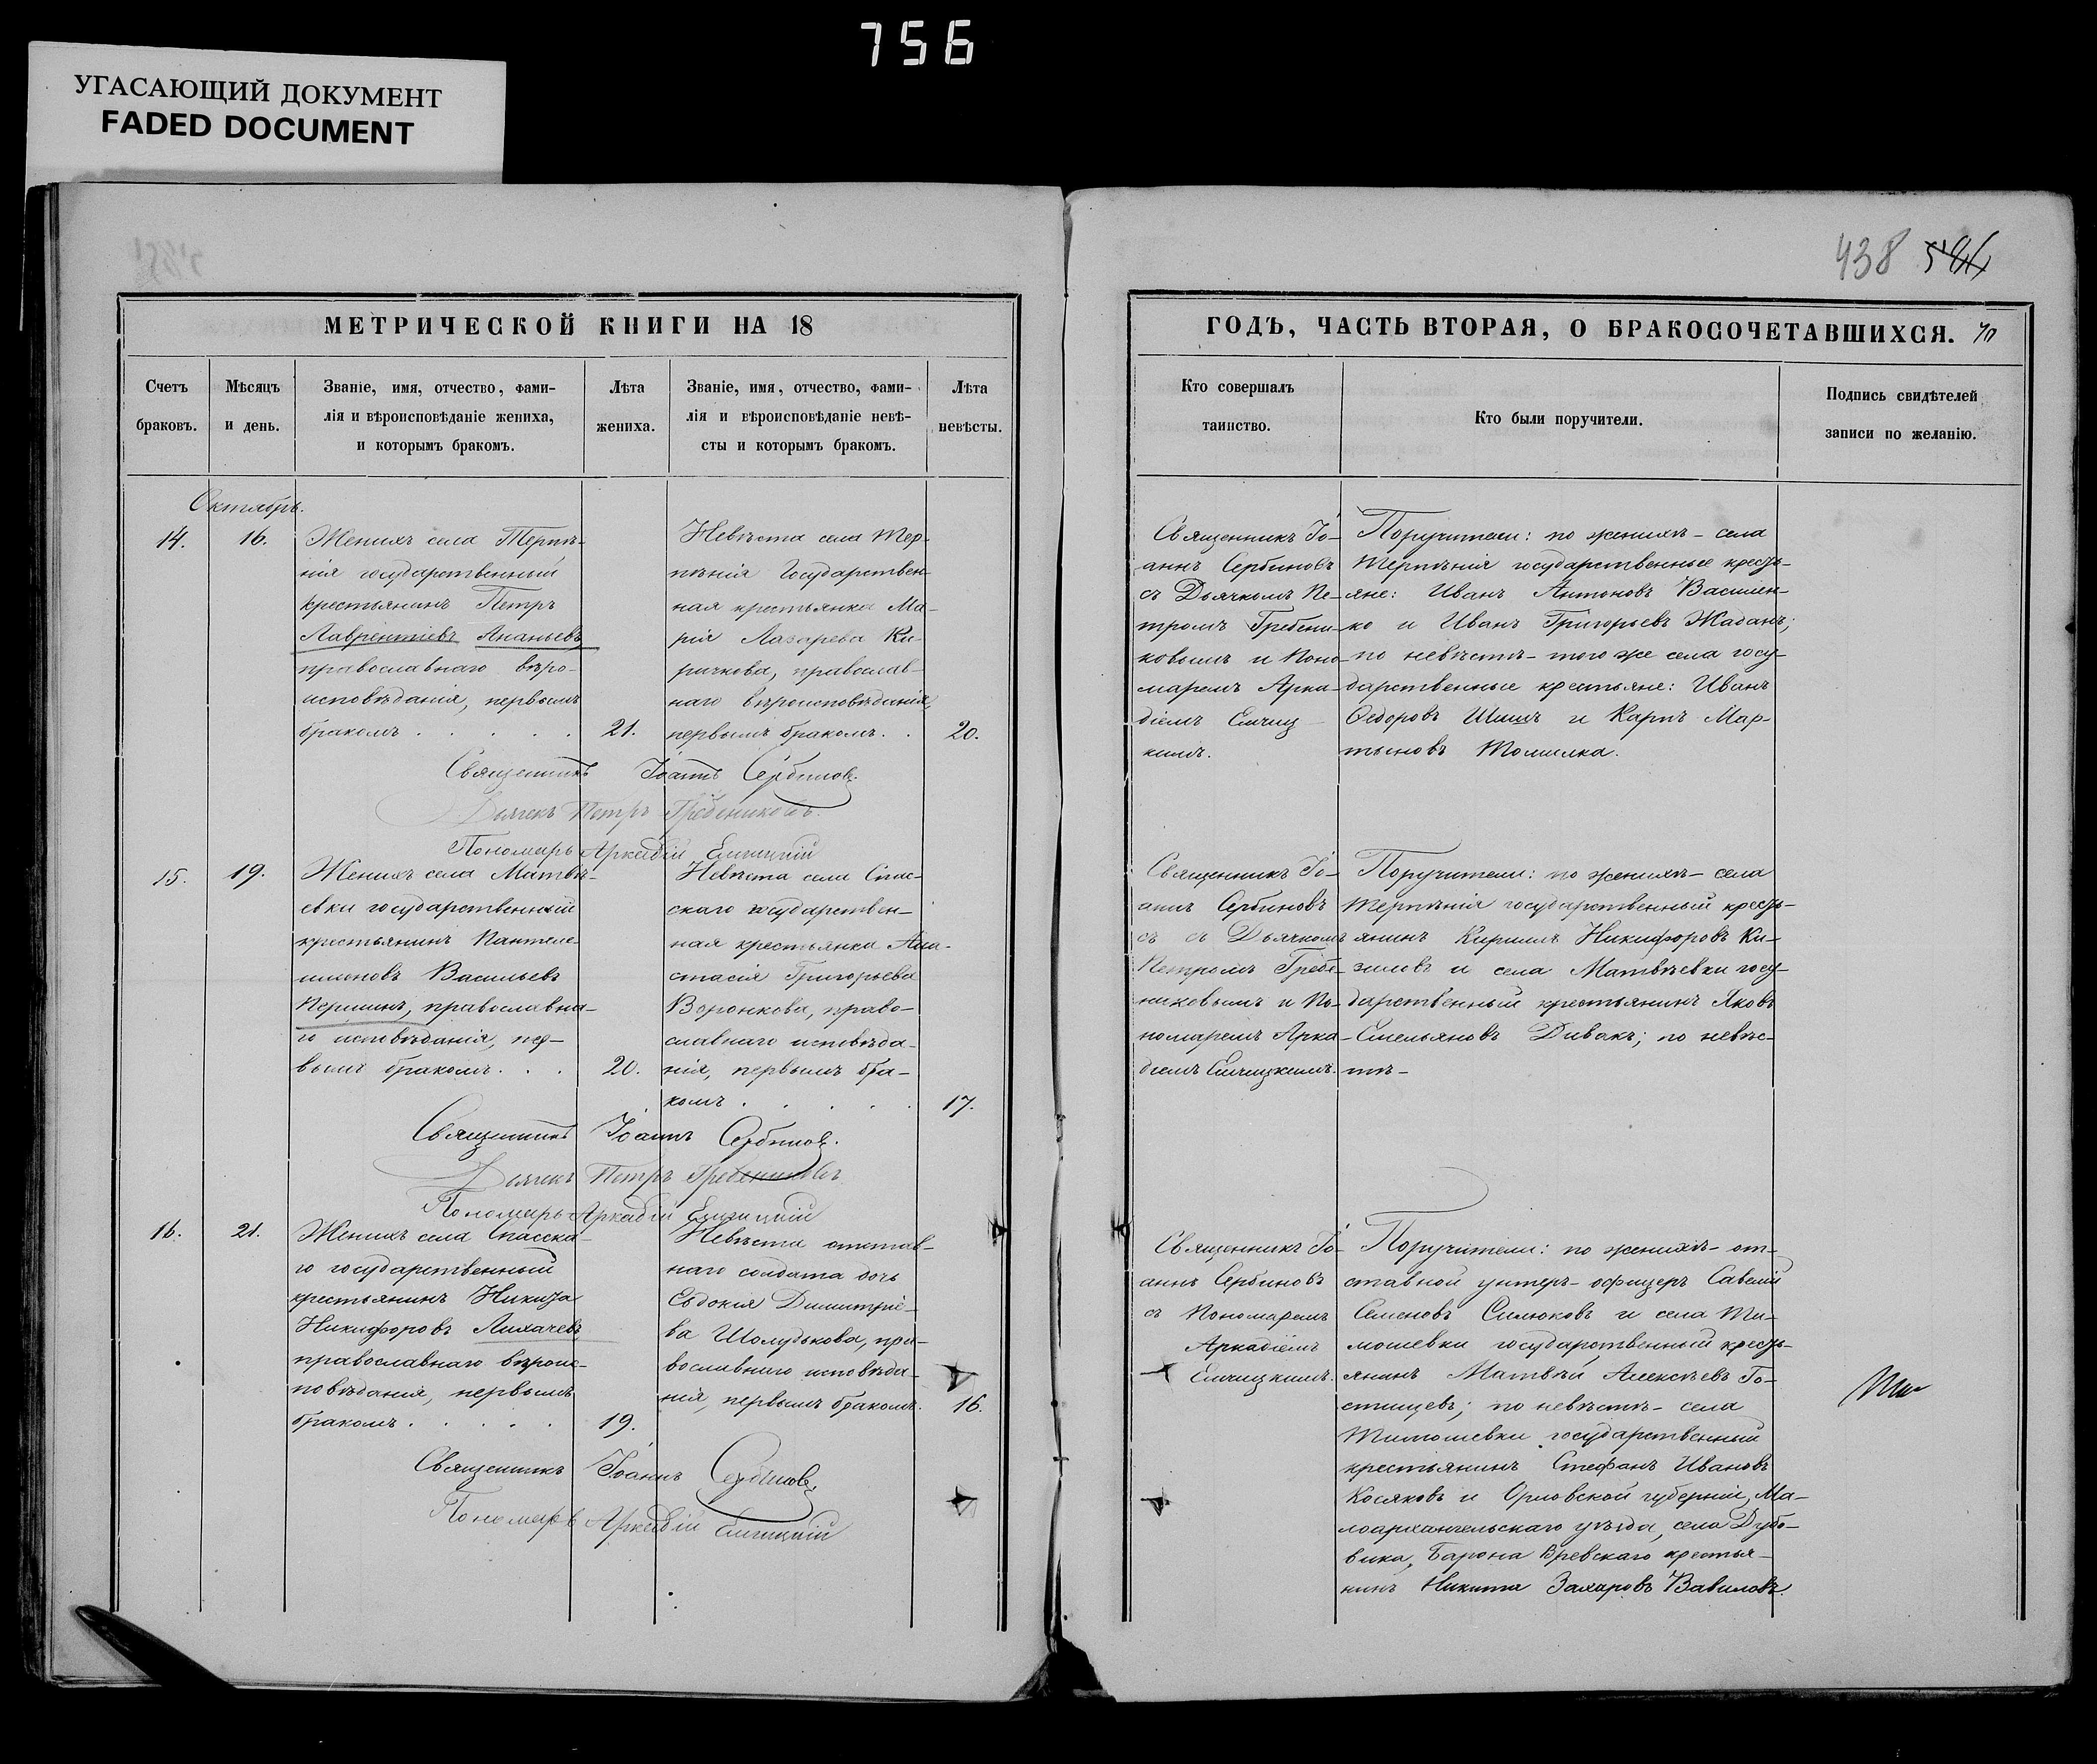 756
УГАСАЮЩИЙ ДОКУМЕНТ
FADED DOCUMENT
МЕТРИЧЕСКОЙ КНИГИ НА 18
Счетъ браковъ.
Мѣсяцъ и день.
Званіе, имя, отчество, фами-
лія и вѣроисповѣданіе жениха,
и которымъ бракомъ.
Лѣта жениха.
Званіе, имя, отчество, фами-
лія и вѣроисповѣданіе невѣ-
сты и которымъ бракомъ.
Лѣта невѣсты.
Октябрь.
14.
16.
Женихъ села Терпѣ-
нія государственный
крестьянинъ Петръ
Лаврентіевъ Ананьевъ
православнаго вѣро-
исповѣданія, первымъ
бракомъ . . . . .
21.
Невѣста села Тер-
пѣнія Государствен-
ная крестьянка Ма-
рія Лазарева Ки-
ричкова, православ-
наго вѣроисповѣданія,
первымъ бракомъ. .
20.
Священникъ Іоаннъ Сербиновъ.
Дьячекъ Петръ Гребениковъ.
Пономарь Аркадій
15.
19.
Женихъ села Матвѣ-
евки государственный
крестьянинъ Пантеле-
имоновъ Васильевъ
Першинъ, православна-
го исповѣданія, пер-
вымъ бракомъ. . .
20.
Невѣста села Спас-
скаго государствен-
ная крестьянка Ана-
стасія Григорьева
Воронкова, право-
славнаго исповѣда-
нія, первымъ бра-
комъ . . . . .
17.
Священникъ Іоаннъ Сербиновъ.
Дьячекъ Петръ Гребениковъ.
Пономарь Аркадій
16.
21.
Женихъ села Спасска-
го государственный
крестьянинъ Никита
Никифоровъ Лихачевъ
православнаго вѣроис-
повѣданія, первымъ
бракомъ . . . . .
19.
Невѣста отстав-
наго солдата дочь
Евдокія Димитріе-
ва Шолудькова, пра-
вославнаго исповѣда-
нія, первымъ бракомъ.
16.
Священникъ Іоаннъ Сербиновъ.
Пономарь Аркадій
438 584
ГОДЪ, ЧАСТЬ ВТОРАЯ, О БРАКОСОЧЕТАВШИХСЯ. 70
Кто совершалъ
таинство.
Кто были поручители.
Подпись свидѣтелей
записи по желанію.
Священникъ Іо-
аннъ Сербиновъ
съ Дьячкомъ Пе-
тромъ Гребени-
ковымъ и Поно-
маремъ Арка-
діемъ
кимъ.
Поручители: по женихѣ - села
Терпѣнія государственные кресть-
яне: Иванъ Антоновъ Василен-
ко и Иванъ Григорьевъ Жаданъ;
по невѣстѣ - того же села госу-
дарственные крестьяне: Иванъ
Ѳедоровъ Шишъ и Карпъ Мар-
тыновъ Томилка.
Священникъ Іо-
аннъ Сербиновъ
съ съ Дьячкомъ
Петромъ Гребе-
никовымъ и По-
номаремъ Арка-
діемъ
Поручители: по женихѣ - села
Терпѣнія государственный кресть-
янинъ Кириллъ Никифоровъ Ки-
зиловъ и села Матвѣевки госу-
дарственный крестьянинъ Яковъ
Емельяновъ Дивакъ; по невѣс-
тѣ -
Священникъ Іо-
аннъ Сербиновъ
съ Пономаремъ
Аркадіемъ
Поручители: по женихѣ - от-
ставной унтеръ-офицеръ Савелій
Семеновъ Силюковъ и села Ти-
мошевки государственный кресть-
янинъ Матвѣй Алексѣевъ Го-
стищевъ; по невѣстѣ - села
Тимошевки государственный
крестьянинъ Стефанъ Ивановъ
Косяковъ и Орловской губерніи, Ма-
лоархангельскаго уѣзда, села Дубо-
вика, Барона Вревскаго крестья-
нинъ Никита Захаровъ Вавиловъ.